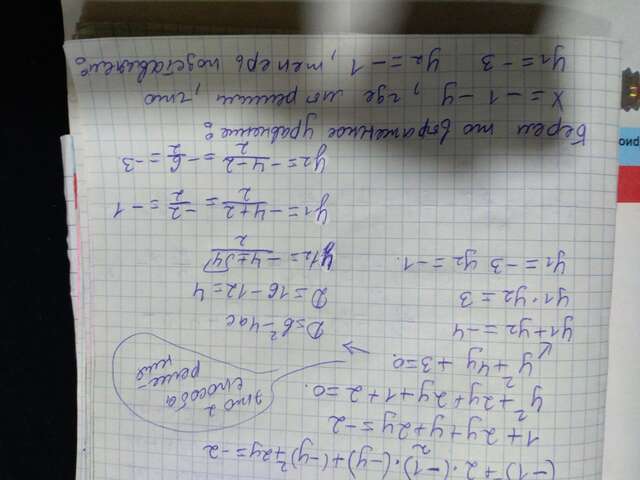 (-1)²+2·(-1)·(-y)+(-y)²+2y=-2
1+2y+y²+2y=-2
y²+2y+2y+1+2=0.
y²+4y+3=0.
это 2
способа
реше-
ния
y₁+y₂=-4
y₁·y₂=3
y₁=-3 y₂=-1.
D=b²-4ac
D=16-12=4
y₁,₂=(-4±√4)/2
y₁=(-4+2)/2=-2/2=-1
y₂=(-4-2)/2=-6/2=-3
Берем то выраженное уравнение:
x=-1-y, где мы решили, что
y₁=-3 y₂=-1, теперь подставляем:
рио